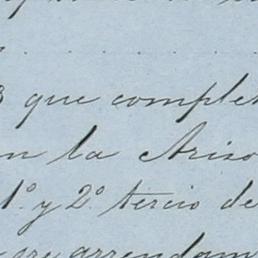 que comple
en la Ariso
1º y 2º tercio de
arrendam